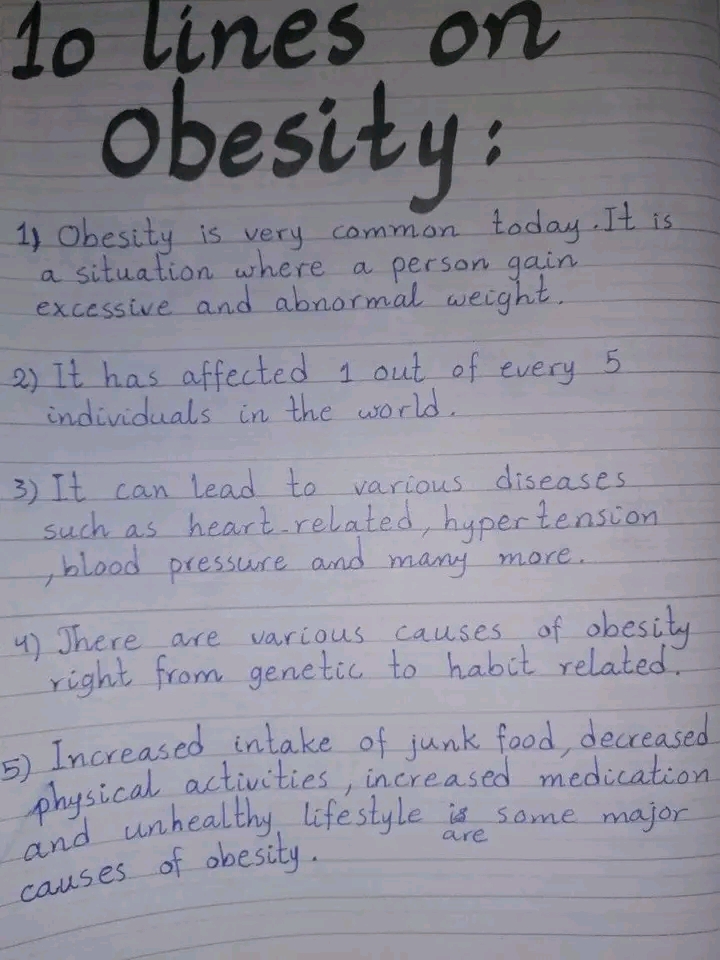 10 lines on
Obesity:
1) Obesity is very common today. It is
a situation where a person gain
excessive and abnormal weight.
2) It has affected 1 out of every 5
individuals in the world.
3) It can lead to various diseases
such as heart-related, hypertension
, blood pressure and many more.
4) There are various causes of obesity
right from genetic to habit related.
5) Increased intake of junk food, decreased
physical activities, increased medication
and unhealthy lifestyle is some major
are
causes of obesity.